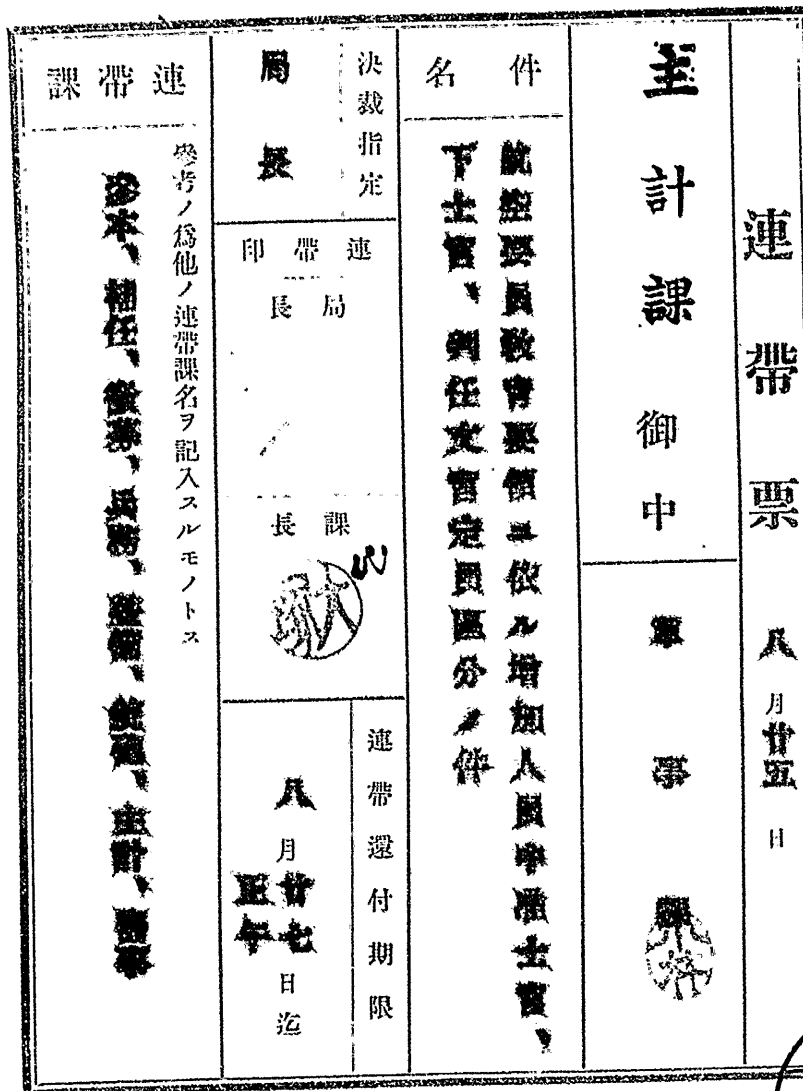 連帶票 八月廿五日
主計課御中
軍事課
件名
航空要員敎育要領ニ依ル增加人員中准士官、
下士官、判任文官定員區分ノ件
決裁指定
局長
連帶印
局長
課長
連帶還付期限
八月廿七日迄
正午
連帶課
參考ノ爲他ノ連帶課名ヲ記入スルモノトス
參本、補任、徵募、兵務、防備、主計、醫事